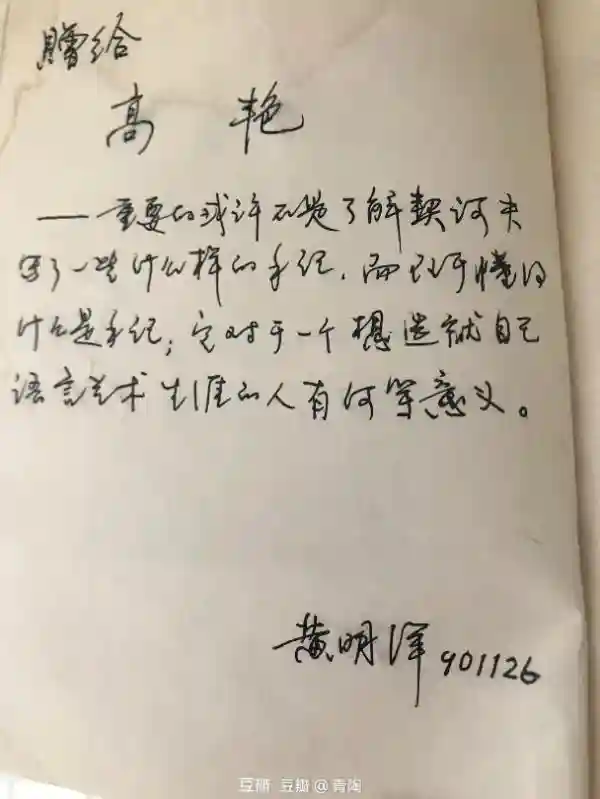 赠给
高 艳
——重要的或许不是了解契诃夫
写了一些什么样的手纪，而在于懂得
什么是手纪；它对于一个想造就自己
语言艺术生涯的人有何等意义。
黄明洋 901126
豆瓣 豆瓣@青陶